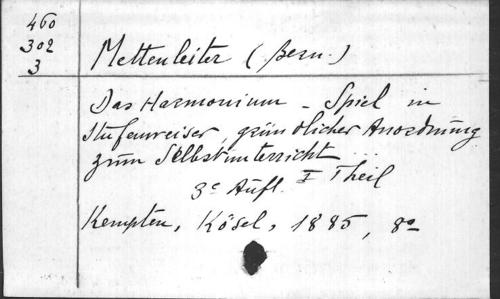 460
302
3
Mettenleiter (Bern.)
Das Harmonium - Spiel in
Stufenweiser, gründlicher Anordnung
zum Selbstunterricht ...
3e Aufl. I Theil
Kempten, Kösel, 1885, 8o